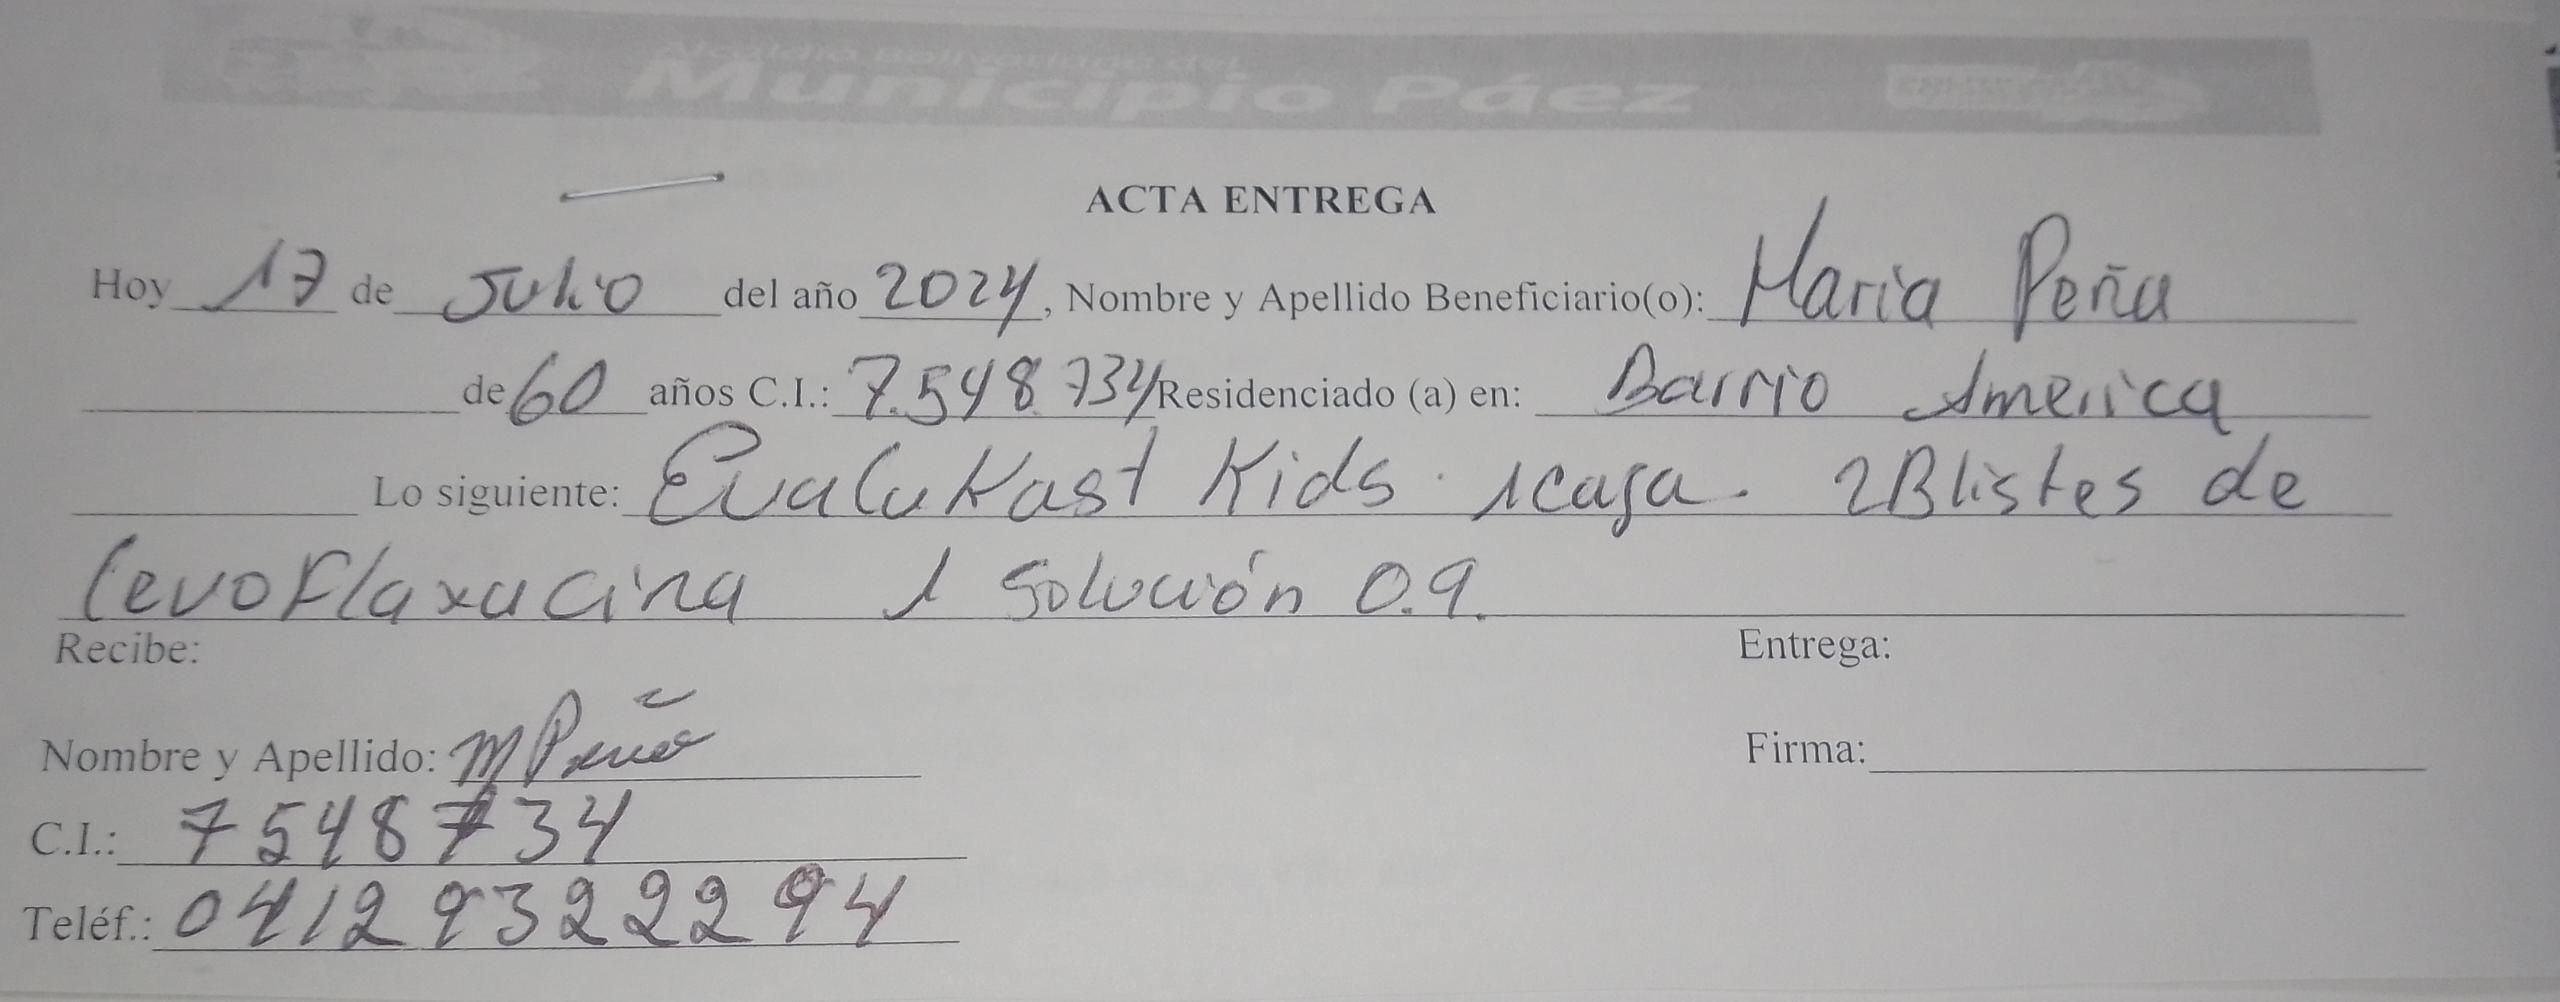 Alcaldía Bolivariana del
Municipio Páez
ACTA ENTREGA
Hoy 17 de Julio del año 2024, Nombre y Apellido Beneficiario(o): Maria Peña
de 60 años C.I.: 7.548.734 Residenciado (a) en: Barrio America
Lo siguiente: Evalukast Kids. 1 caja. 2 Blistes de
levoFlaxacina 1 Solución 0.9.
Recibe: Entrega:
Nombre y Apellido: M Peña Firma:
C.I.: 7548734
Teléf.: 0412 9322294